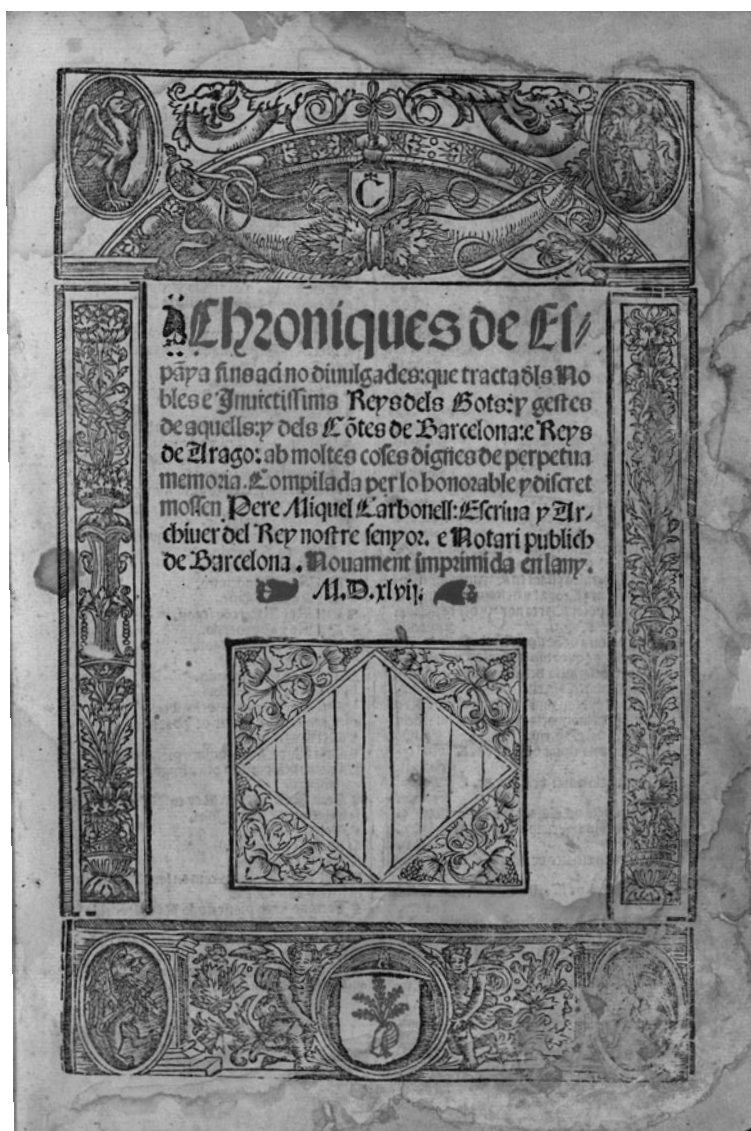 C
Chroniques de Es⸗
pãya fins aci no diuulgades: que tracta d̃ls No
bles e Inuictissims Reys dels Gots: y gestes
de aquells: y dels Cõtes de Barcelona: e Reys
de Arago: ab moltes coses dignes de perpetua
memoria. Compilada per lo honorable y discret
mossen Pere Miquel Carbonell: Escriua y Ar-
chiuer del Rey nostre senyor. e Notari publich
de Barcelona. Nouament imprimida en lany.
M.D.xlvij.